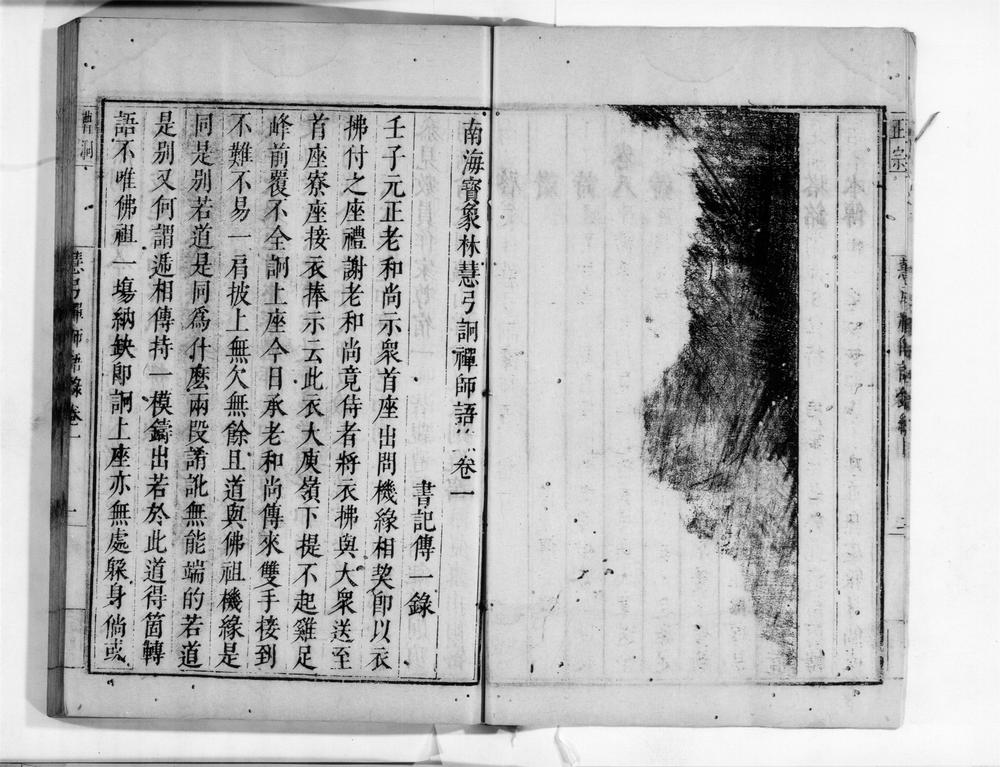 正宗
南海寶象林慧弓詗禪師語 卷一
書記傳一錄
壬子元正老和尚示衆首座出問機緣相契卽以衣
拂付之座禮謝老和尚竟侍者將衣拂與大衆送至
首座寮座接衣捧示云此衣大庾嶺下提不起雞足
峰前覆不全詗上座今日承老和尚傳來雙手接到
不難不易一肩披上無欠無餘且道與佛祖機緣是
同是別若道是同爲什麼兩段誵訛無能端的若道
是别又何謂遞相傳持一模鑄出若於此道得箇轉
語不唯佛祖一塲納缺卽詗上座亦無處躱身倘或
曹洞
慧弓禪師語錄卷一
一